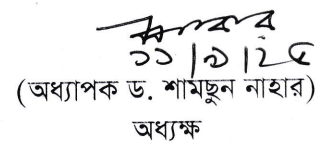 ১১|৯|২৫
(অধ্যাপক ড. শামছুন নাহার)
অধ্যক্ষ